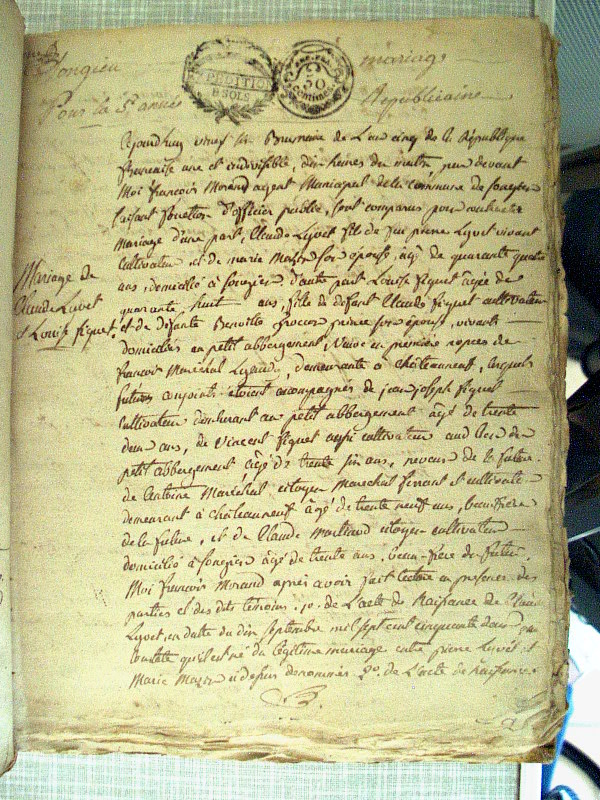 Songieu mariage
Pour la 5e année Républicaine
PETITION
8 SOLS
50
centimes
Cejourdhuy vingt un Brumaire de L'an cinq de la République
françaite une et indivisible, dix heures du matin, par devant
Moi francois Morand agent Municipal de la commune de songieu
faisant fonction d'officier public, sont comparus pour contracter
Mariage d'une part, Claude Lyvet fils de feu pierre Lyvet vivant
Cultivateur et de marie son épouse, âgé de quarante quatre
ans domicilié à songieu d'autre part Louise figuet âgée de
quarante huit ans, fille de défunt Claude figuet cultivateur
et de défunte Benoitte son épouse, vivants
domiciliés au petit abbergement, veuve en première nopces de
francois Maréchal demeurante à châteauneuf, lesquels
futurs conjoints étoient accompagnés de jean joseph figuet
cultivateur demeurant au petit abbergement âgé de trente
deux ans, de vincent figuet aussi cultivateur aud lieu du
petit abbergement âgé de trente six ans, neveux de la future
de Antoine Maréchal citoyen maréchal ferrant et cultivateur
demeurant à châteauneuf âgé de trente neuf ans, beau frère
de la future, et de Claude citoyen cultivateur
domicilié à songieu âgé de trente ans, beau-frère du futur
Moi francois Morand après avoir fait lecture en présence des
parties et des dits témoins, 1o. de L'acte de Naissance de Claude
Lyvet, en datte du dix septembre mil sept cent cinquante deux qui
constate qu'il est né du légitime mariage entre pierre Lyvet et
Marie cidessus denommés 2o. de L'acte de naissance
Mariage de
Claude Lyvet
et Louise figuet.